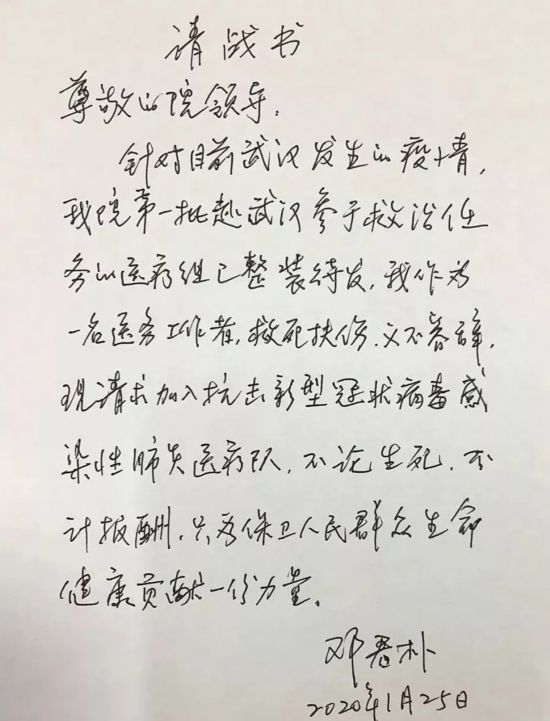 请战书
尊敬的院领导,
针对目前武汉发生的疫情,
我院第一批赴武汉参于救治任
务的医疗组已整装待发,我作为
一名医务工作者,救死扶伤,义不容辞,
现请求加入抗击新型冠状病毒感
染性肺炎医疗队,不论生死,不
计报酬,只为保卫人民群众生命
健康贡献一份力量。
邓 朴
2020年1月25日